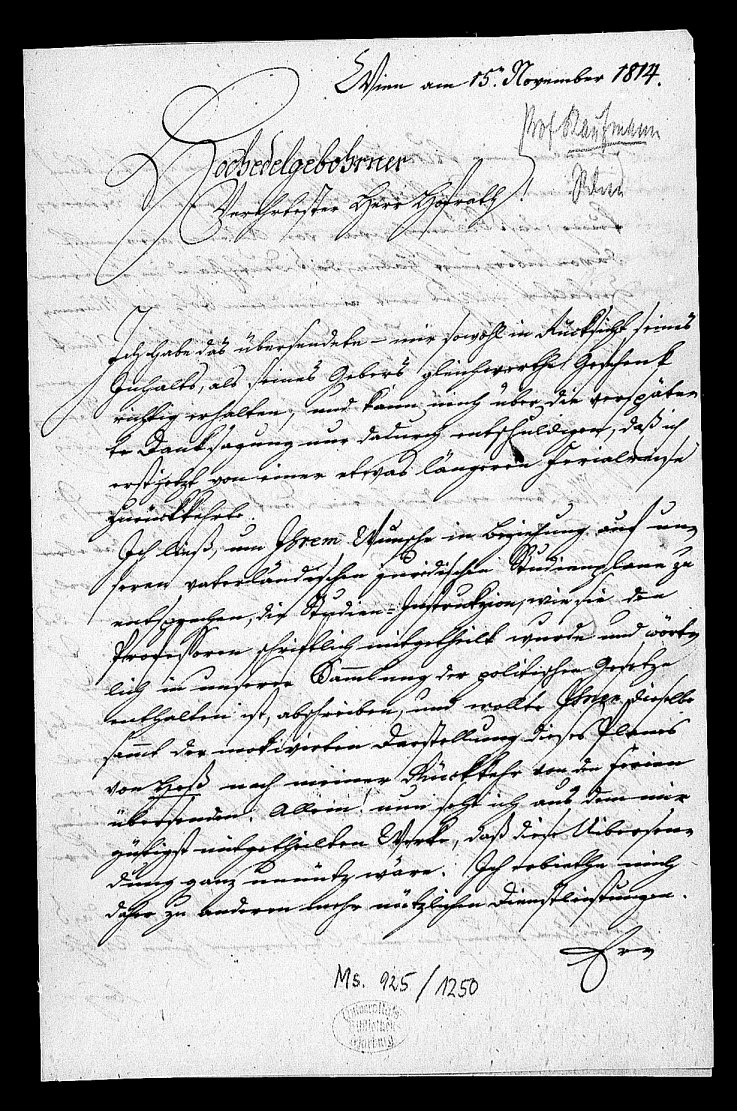 Wien am 15n November 1814.
Prof. Kaufmann
Hochedelgebohrner
Verehrtester Herr Hofrath!
Ich habe das übersendete – mir sowohl in Rücksicht seines
Inhalts, als seines Gebers gleichwerthe Geschenk
richtig erhalten, und kann mich über die verspäte-
te Danksagung nur dadurch entschuldigen, daß ich
erst jetzt von einer etwas längeren Ferialreise
zurückkehrte.
Ich ließ, um Ihrem Wunsche in Beziehung auf un-
seren vaterländischen juridischen Studienplane zu
entsprechen, die Studien-Instrukzion, wie sie den
Professoren schriftlich mitgetheilt wurde und wört-
lich in unserer Sammlung der politischen Gesetze
enthalten ist, abschreiben, und wollte Ihnen dieselbe
sammt der motivirten Darstellung dieses Planes
von Heß nach meiner Rückkehr von den Ferien
übersenden. Allein nun sehe ich aus dem mir
gütigst mitgetheilten Werke, daß diese Uibersen-
dung ganz unnütz wäre. Ich erbiethe mich
daher zu anderen mehr nützlichen Dienstleistungen.
Ms. 925/1250
Universitäts
Bibliothek
Marburg